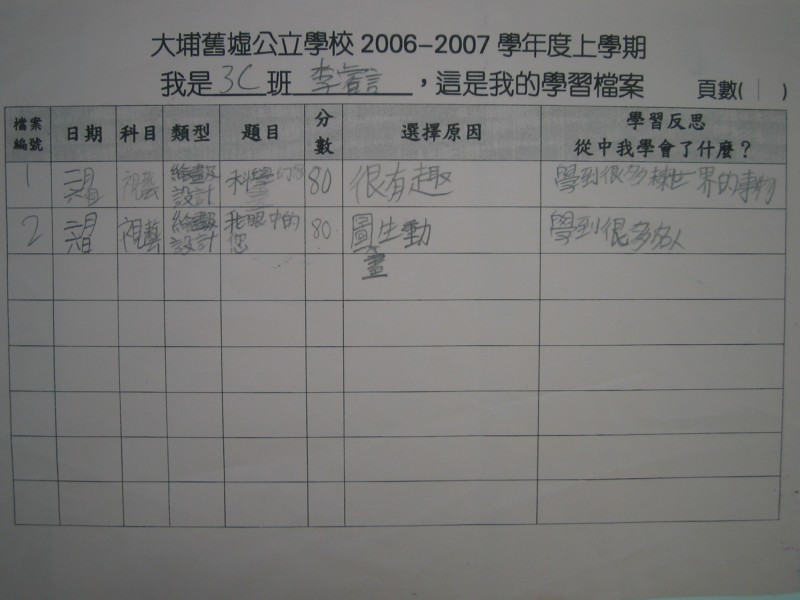 大埔舊墟公立學校 2006-2007 學年度上學期
我是 3C 班 李睿言 ,這是我的學習檔案 頁數( 1 )
檔案編號 日期 科目 類型 題目 分數 選擇原因 學習反思 從中我學會了什麼?
1 視藝 繪畫設計 80 很有趣 學到很多 世界的事物
2 視藝 繪畫設計 我眼中的您 80 圖畫生動 學到很多名人